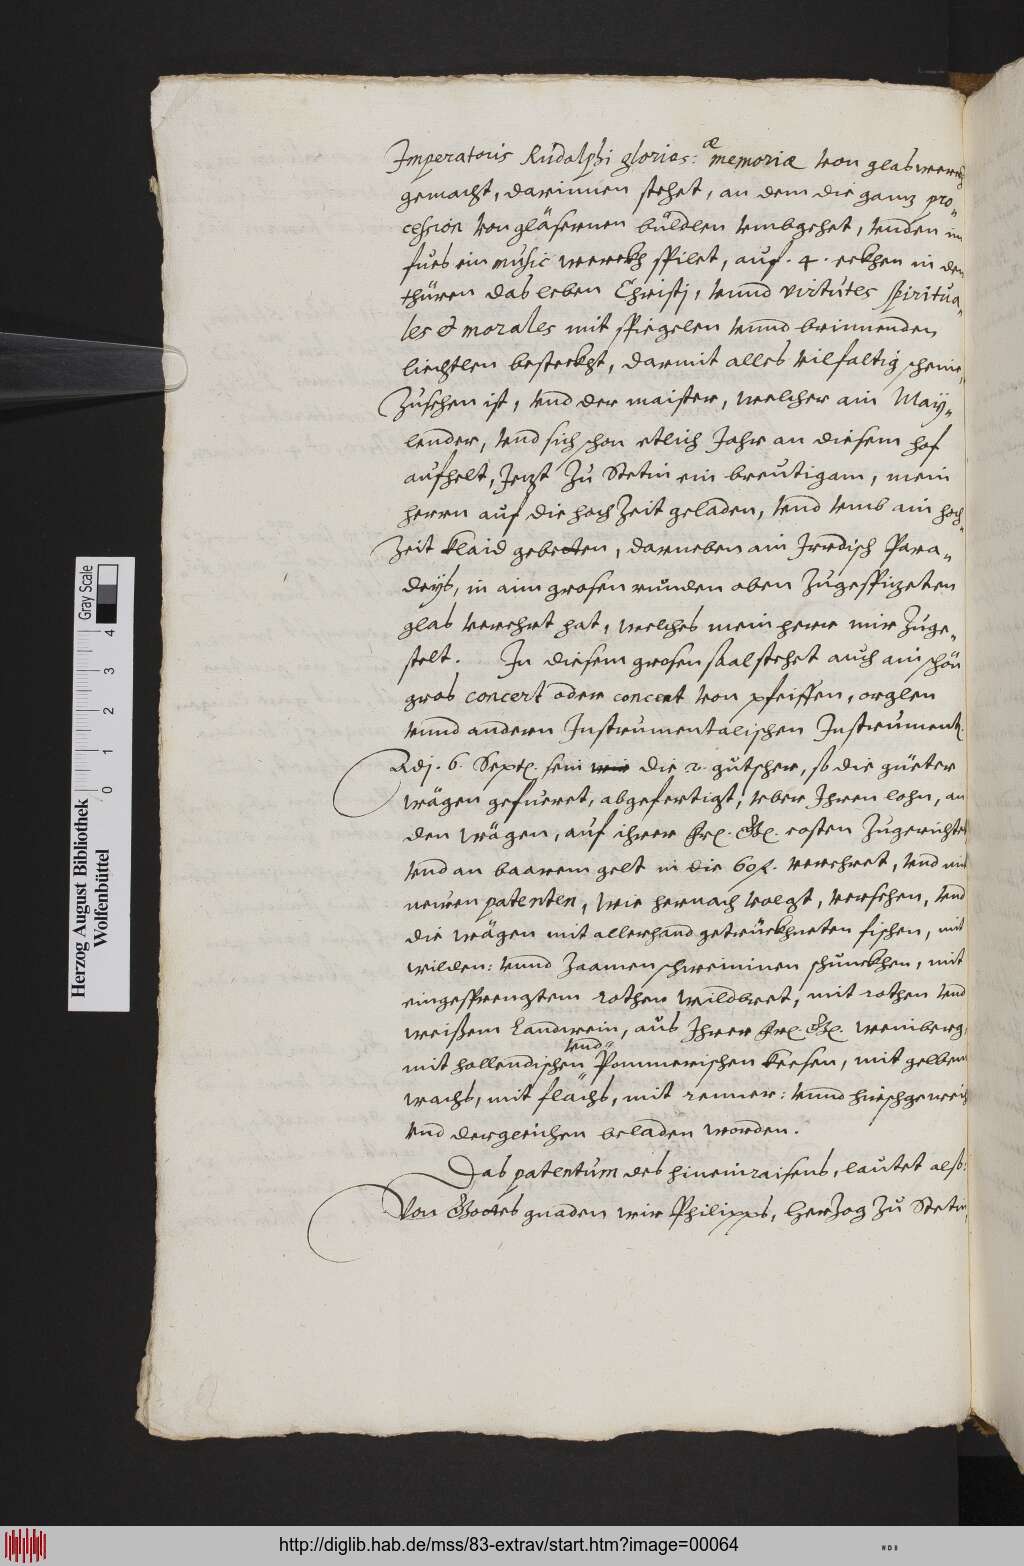 Imperatoris Rudolphi glorios: æ memoriæ von glaswerckh
gemacht, darinnen stehet, an dem die ganz pro-
cession von gläsernen büldlen vmbgehet, vnden im
fues ein music werckh spilet, auf .4. eckhen in den
thüren das leben Christj, vnnd virtutes spiritua-
les & morales mit spiegelen vnnd brinnenden
liechtlen besteckht, darmit alles vilfaltig scheine,
Zusehen ist, vnd der maister, welcher ain May-
lender, vnd sich schon etlich Jahr an diesem hof
aufhelt, Jezt Zu Stetin ein breutigam, mein
herrn auf die hochZeit geladen, vnd vmb ain hoch-
Zeit klaid gebetten, darneben ain Irrdisch Para-
deÿs, in aim grosen runden oben Zugespizeten
glas verehrt hat, welches mein herr mir Zuge-
stelt. In diesem grosen saal stehet auch ain schön
gros concert oder concent von pfeiffen, orglen
vnnd andern Instrumentalischen Instrument.
Adj. 6. Sept. sein wir die 2. gutscher, so die güeter
wägen gefueret, abgefertigt, vber Ihren lohn, an
den wägen, auf ihrer frl. Gl. costen Zugerichtet,
vnd an baarem gelt in die 60 fl. verehret, vnd mit
neuen patenten, wie hernach volgt, versehen, vnd
die wägen mit allerhand getrückhneten fischen, mit
wilden: vnnd Zaamen schweininen schunckhen, mit
eingesprengtem rothen wildbret, mit rothen vnd
weißem Landwein, aus Ihrer frl. Gl. weinberg,
mit hollendischen vnd Pommerischen keesen, mit gelbem
wachs, mit flachs, mit renner: vnnd hirschgeweich
vnd dergleichen beladen worden.
Das patentum des hineinraisens, lautet also:
Von Gottes gnaden wir Philipps, HerZog Zu Stetin,
Herzog August Bibliothek
Wolfenbüttel
0 1 2 3 4
Gray Scale
http://diglib.hab.de/mss/83-extrav/start.htm?image=00064